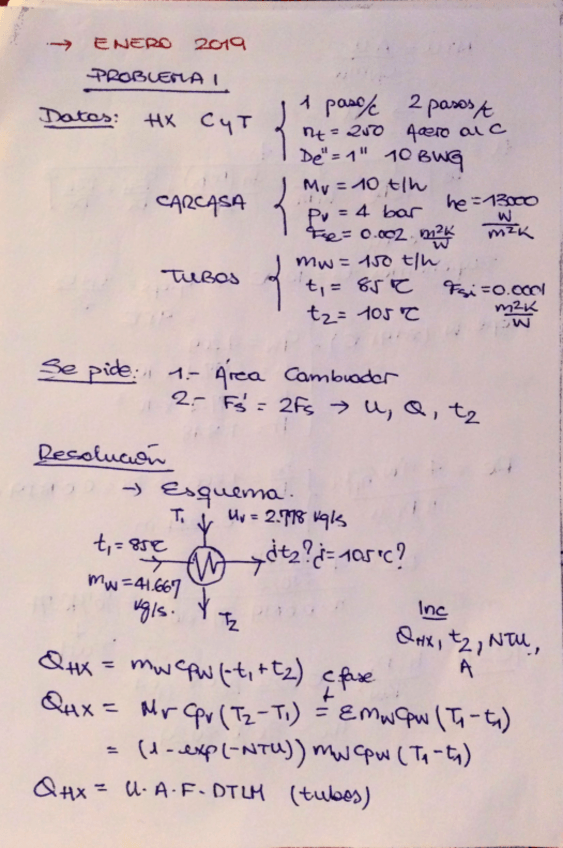 → ENERO 2019
PROBLEMA 1
Datos: HX C y T { 1 paso/c 2 pasos/t
nt = 250 Acero al C
De" = 1" 10 BWG
CARCASA { Mv = 10 t/h
pv = 4 bar he = 13000 W/m²K
Fse = 0.002 m²K/W
TUBOS { mw = 150 t/h
t1 = 85 ºC Fsi = 0.0001 m²K/W
t2 = 105 ºC
Se pide: 1.- Área Cambiador
2.- Fs' = 2Fs → U, Q, t2
Resolución
→ Esquema.
T1 Mv = 2.778 kg/s
t1 = 85ºC ¿t2? ¿= 105ºC?
mw = 41.667 kg/s. T2
Inc
QHX, t2, NTU, A
QHX = mw cpw (-t1 + t2) c fase
QHX = Mv cpv (T2 - T1) = Ɛ mw cpw (T1 - t1)
= (1 - exp(-NTU)) mw cpw (T1 - t1)
QHX = U · A · F · DTLM (tubos)